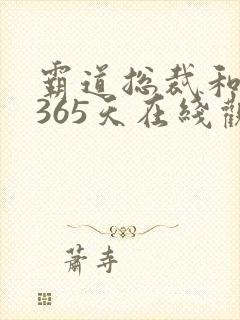 霸道总裁和
365天在线
萧寺